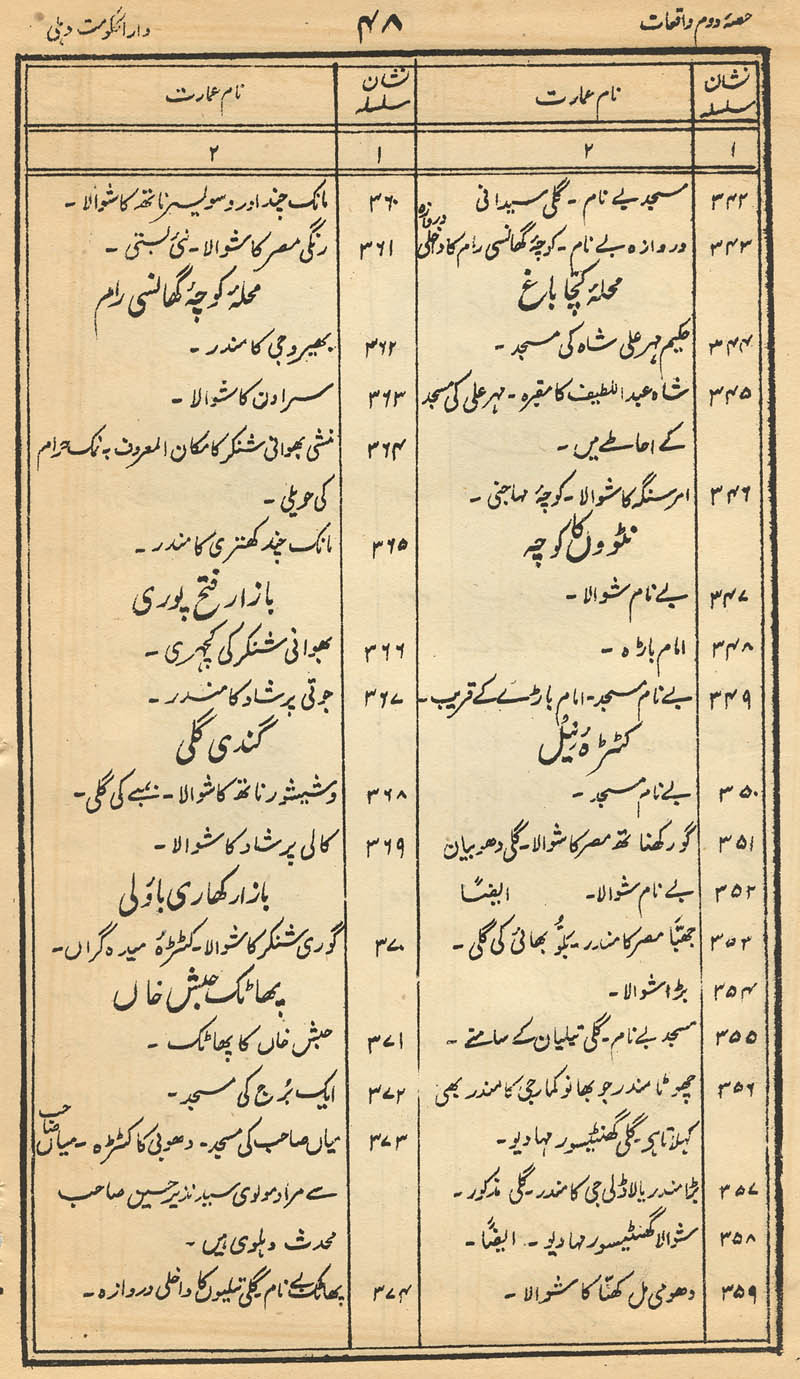 حصۂ دوم واقعات
۴۸
دارالحکومت دہلی
نشان سلسلہ
نام عمارت
۱
۲
۳۴۲ مسجد بے نام - گلی سیدانی
۳۴۳ دروازہ بے نام - کوچۂ گھانسی رام کا داخلی دروازہ
محلۂ کچا باغ
۳۴۴ حکیم مہر علی شاہ کی مسجد -
۳۴۵ شاہ عبداللطیف کا مقبرہ - مہر علی کی مسجد
کے احاطے میں -
۳۴۶ امر سنگہ کا شوالا - کوچۂ مہاجنی -
نٹووں کا کوچہ
۳۴۷ بے نام شوالا -
۳۴۸ امام باڑہ -
۳۴۹ بے نام مسجد - امام باڑے کے قریب -
کٹڑہ نیل
۳۵۰ بے نام مسجد -
۳۵۱ گورکھنا تھ مصر کا شوالا - گلی دھوبیان
۳۵۲ بے نام شوالا - ایضاً
۳۵۳ جھبّا مصر کا مندر - بلّو بھائی کی گلی -
۳۵۴ بڑا شوالا -
۳۵۵ مسجد بے نام - گلی تیلیان کے سامنے -
۳۵۶ چھوٹا مندر جو بھانو کمار جی کا مندر بھی
کہلاتا ہے - گلی گھنٹیسور مہادیو -
۳۵۷ بڑا مندر یا لاڈلی جی کا مندر - گلی مذکور -
۳۵۸ شوالا گھنٹیسور مہادیو - ایضاً -
۳۵۹ دھومی مل کھنّا کا شوالا -
نشان سلسلہ
نام عمارت
۱
۲
۳۶۰ مانک چند اور وسولیسر ناتھ کا شوالا -
۳۶۱ رنگی مصر کا شوالا - نئی بستی -
محلۂ کوچۂ گھانسی رام
۳۶۲ بھیروجی کا مندر -
۳۶۳ سراون کا شوالا -
۳۶۴ منشی بھوانی شنکر کا مکان المعروف بہ نمک حرام
کی حویلی -
۳۶۵ مانک چند کھتری کا مندر -
بازار فتح پوری
۳۶۶ بھوانی شنکر کی کچہری -
۳۶۷ جوتی پرشاد کا مندر -
گندی گلی
۳۶۸ وشیشور ناتھ کا شوالا - کی گلی -
۳۶۹ کالی پرشاد کا شوالا -
بازار کھاری باؤلی
۳۷۰ گوری شنکر کا شوالا - کٹڑۂ میدہ گراں -
پھاٹک حبش خاں
۳۷۱ حبش خاں کا پھاٹک -
۳۷۲ ایک بُرج کی مسجد -
۳۷۳ میاں صاحب کی مسجد - دھوبی کا کٹڑہ - میاں صاحب
سے مراد مولوی سید نذیر حسین صاحب
محدث دہلوی ہیں -
۳۷۴ پھاٹک بے نام - گلی تیلیوں کا داخلی دروازہ -